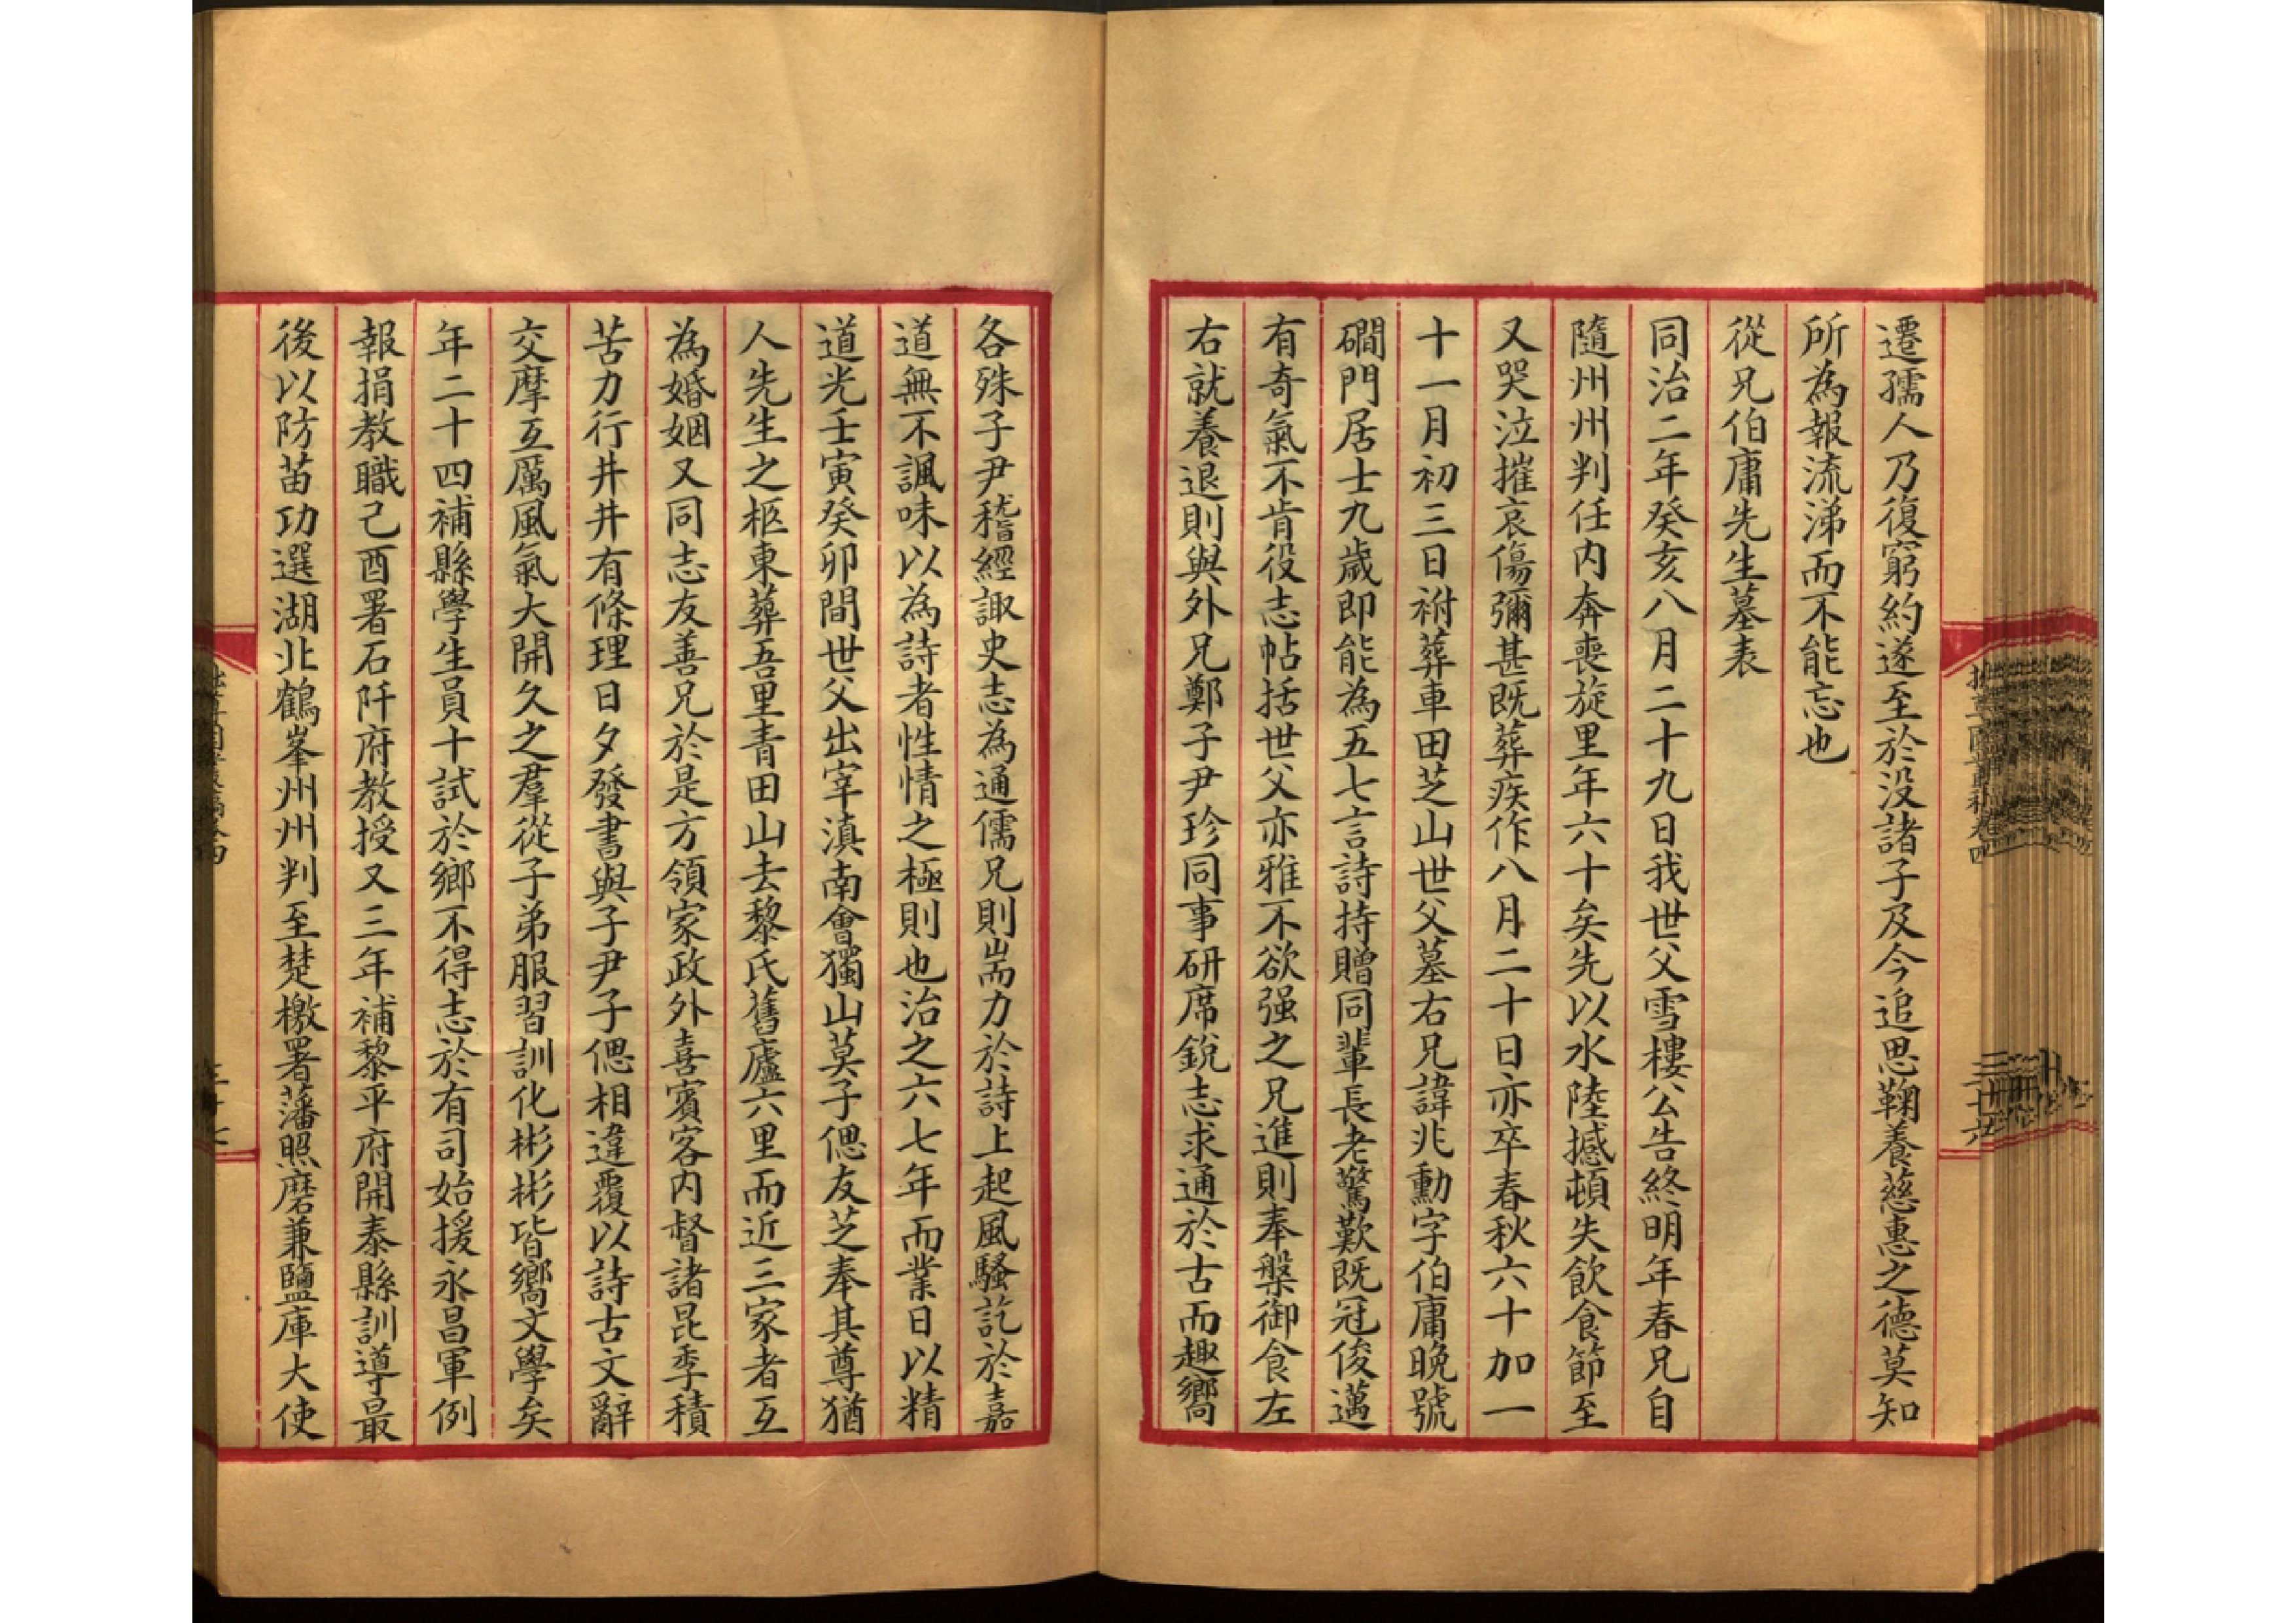 遷孺人乃復窮約遂至於没諸子及今追思鞠養慈惠之德莫知
所為報流涕而不能忘也
從兄伯庸先生墓表
同治二年癸亥八月二十九日我世父雪樓公告終明年春兄自
隨州州判任内奔喪旋里年六十矣先以水陸撼頓失飲食節至
又哭泣摧哀傷彌甚既葬疾作八月二十日亦卒春秋六十加一
十一月初三日祔葬車田芝山世父墓右兄諱兆勳字伯庸晚號
磵門居士九歲即能為五七言詩持贈同輩長老驚歎既冠俊邁
有奇氣不肯役志帖括世父亦雅不欲强之兄進則奉槃御食左
右就養退則與外兄鄭子尹珍同事研席銳志求通於古而趣嚮
各殊子尹稽經諏史志為通儒兄則耑力於詩上起風騷訖於嘉
道無不諷味以為詩者性情之極則也治之六七年而業日以精
道光壬寅癸卯間世父出宰滇南會獨山莫子偲友芝奉其尊猶
人先生之柩東葬吾里青田山去黎氏舊廬六里而近三家者互
為婚姻又同志友善兄於是方領家政外喜賓客内督諸昆季積
苦力行井井有條理日夕發書與子尹子偲相違覆以詩古文辭
交摩互厲風氣大開久之羣從子弟服習訓化彬彬皆嚮文學矣
年二十四補縣學生員十試於鄉不得志於有司始援永昌軍例
報捐教職己酉署石阡府教授又三年補黎平府開泰縣訓導最
後以防苗功選湖北鶴峯州州判至楚檄署藩照磨兼鹽庫大使
三十六